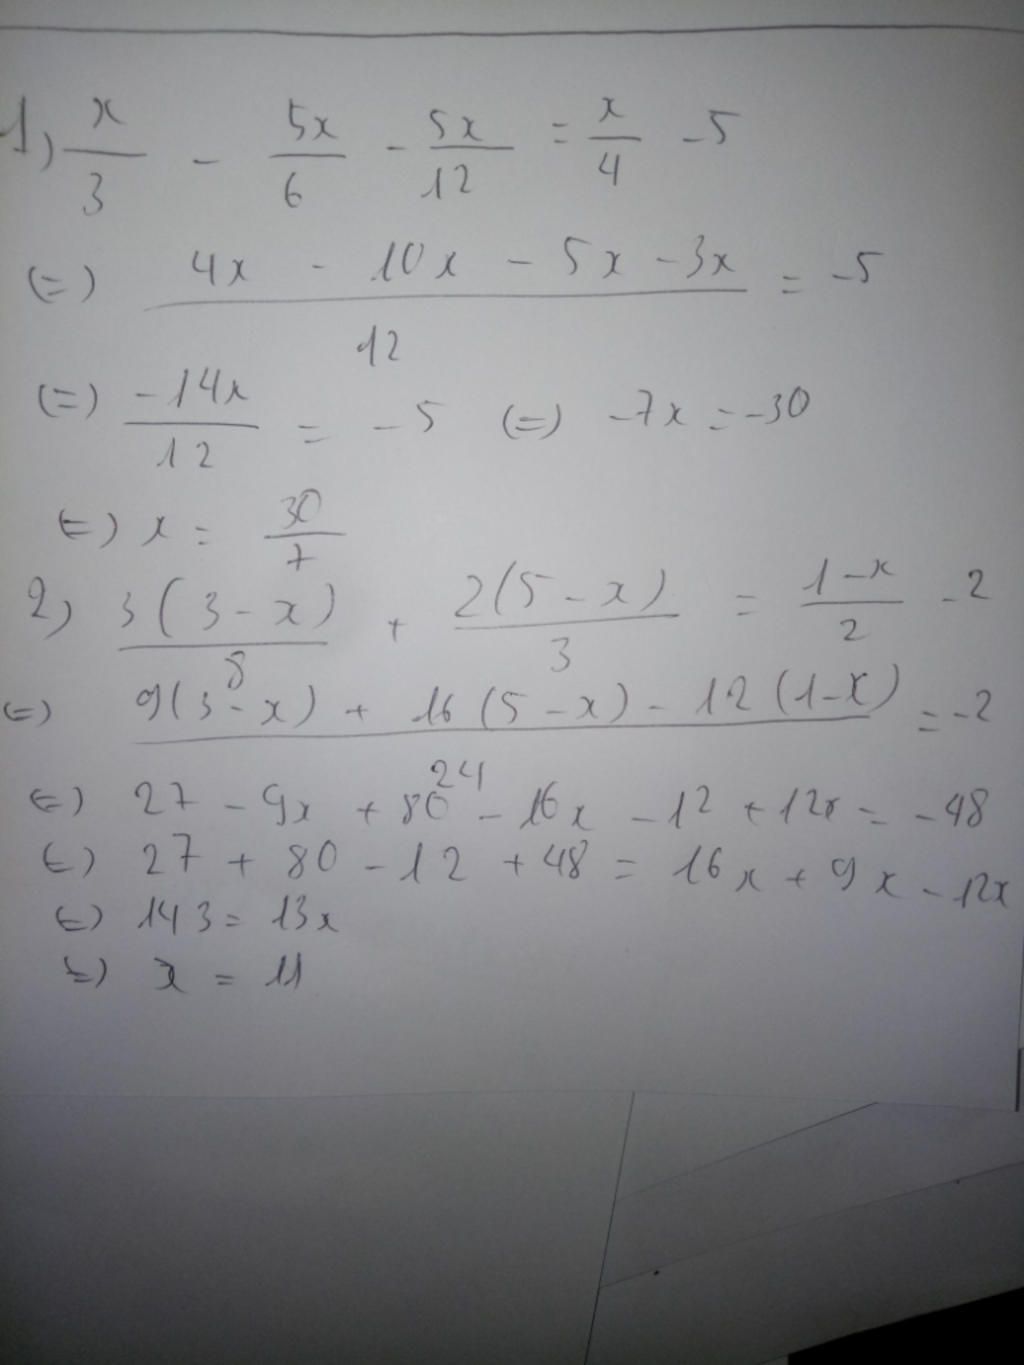 1) x/3 - 5x/6 - 5x/12 = x/4 - 5
(=) (4x - 10x - 5x - 3x)/12 = -5
(=) -14x/12 = -5 (=) -7x = -30
(=) x = 30/7
2) 3(3-x)/8 + 2(5-x)/3 = (1-x)/2 - 2
(=) (9(3-x) + 16(5-x) - 12(1-x))/24 = -2
(=) 27 - 9x + 80 - 16x - 12 + 12x = -48
(=) 27 + 80 - 12 + 48 = 16x + 9x - 12x
(=) 143 = 13x
(=) x = 11